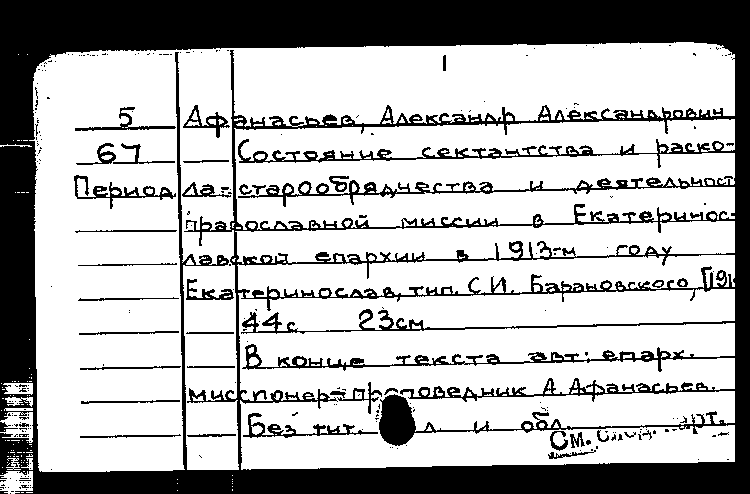 5 Афанасьев, Александр Александрович
67 Состояние сектантства и раско-
Период ла-старообрядчества и деятельност
православной миссии в Екатеринос-
лавской епархии в 1913-м году
Екатеринослав, тип. С.И. Барановского, [191
44с. 23см.
В конце текста авт: епарх.
миссионер-проповедник А. Афанасьев.
Без тит. л. и обл.
См.